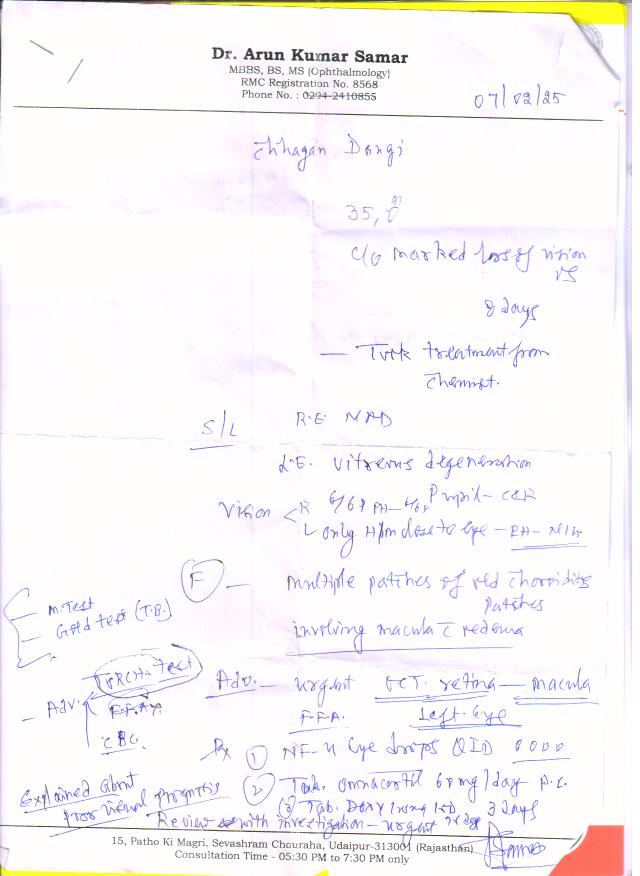 Dr. Arun Kumar Samar
MBBS, BS, MS (Ophthalmology)
RMC Registration No. 8568
Phone No. : 0294-2410855
07/02/25
Chhagan Dangi
35,
c/o marked loss of vision
8 days
— Took treatment from
chemist.
S/L R.E. NAD
L.E. vitreous degeneration
Vision < R 6/6P PH — 6/6P Pupil — C&R
L only HM close to eye — PH — NIH
F — multiple patches of old choroiditis
patches
involving macula c̄ oedema
M. Test
Gold test (T.B.)
Adv. — TORCH test
F.F.A.
CBC.
Adv. — urgent OCT. retina — macula
F.F.A. Left Eye
Rx 1 eye drops QID 0000
2 Tab. Omnacortil 60 mg/day P.C.
3 Tab. Doxy 100mg BD 3 days
Explained about
poor visual prognosis
Review with investigation — urgent
15, Patho Ki Magri, Sevashram Chouraha, Udaipur-313001 (Rajasthan)
Consultation Time - 05:30 PM to 7:30 PM only